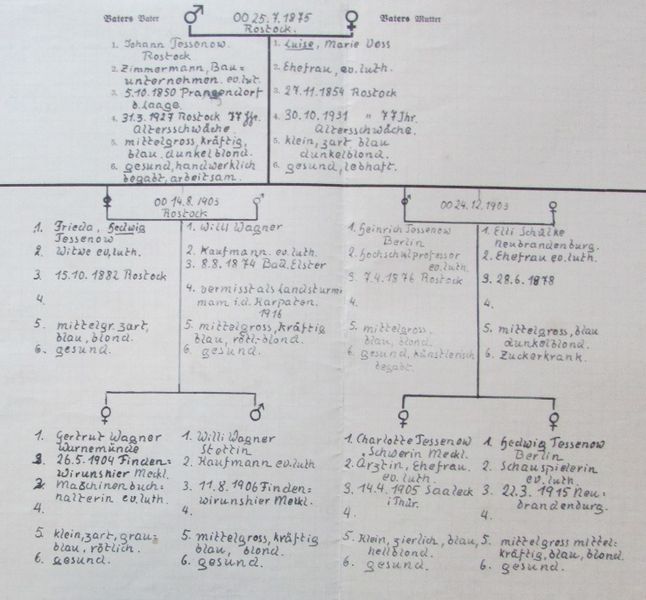 Vaters Vater
OO 25.7.1875
Rostock.
Vaters Mutter
1. Johann Tessenow.
Rostock
2. Zimmermann, Bau=
unternehmen. ev.lut.
3. 5.10.1850 Prangendorf
b. Laage.
4. 31.3.1927 Rostock 77 Jhr.
Altersschwäche.
5. mittelgross, kräftig,
blau. dunkelblond.
6. gesund, handwerklich
begabt, arbeitsam.
1. Luise, Marie Voss
2. Ehefrau, ev. luth.
3. 27.11.1854 Rostock
4. 30.10.1931 " 77 Jhr.
Altersschwäche.
5. klein, zart, blau
dunkelblond.
6. gesund, lebhaft.
OO 14.8.1903
Rostock
1. Frieda, Hedwig
Tessenow
2. Witwe ev. luth.
3. 15.10.1882 Rostock
4.
5. mittelgr. zart,
blau, blond.
6. gesund.
1. Willi Wagner
2. Kaufmann. ev. luth.
3. 8.8.1874 Bad Elster
4. vermisst als Landsturm
mam i.d. Karpaten.
1916
5. mittelgross, kräftig
blau, rötl-blond.
6. gesund.
OO 24.12.1903
1. Heinrich Tessenow
Berlin
2. Hochschulprofessor
ev. luth.
3. 7.4.1876 Rostock
4.
5. mittelgross.
blau, blond.
6. gesund, künstlerisch
begabt.
1. Elli Schülke
Neubrandenburg.
2. Ehefrau ev. luth.
3. 28.6.1878
4.
5. mittelgross, blau
dunkelblond.
6. Zuckerkrank.
1. Gertrut Wagner
Warnemünde
3. 26.5.1904 Finden=
wirunshier Meckl.
2. Maschinenbuch=
halterin ev. luth.
4.
5. klein, zart, grau=
blau, rötlich.
6. gesund.
1. Willi Wagner
Stettin
2. Kaufmann ev. luth
3. 11.8.1906 Finden=
wirunshier Meckl.
4.
5. mittelgross, kräftig
blau, blond.
6. gesund.
1. Charlotte Tessenow
Schwerin Meckl.
2. Ärztin, Ehefrau
ev. luth.
3. 14.4.1905 Saaleck
i. Thür.
4.
5. Klein, zierlich, blau,
hellblond.
6. gesund.
1. Hedwig Tessenow
Berlin
2. Schauspielerin
ev. luth.
3. 22.3.1915 Neu=
brandenburg.
4.
5. mittelgross mittel=
kräftig, blau, blond.
6. gesund.